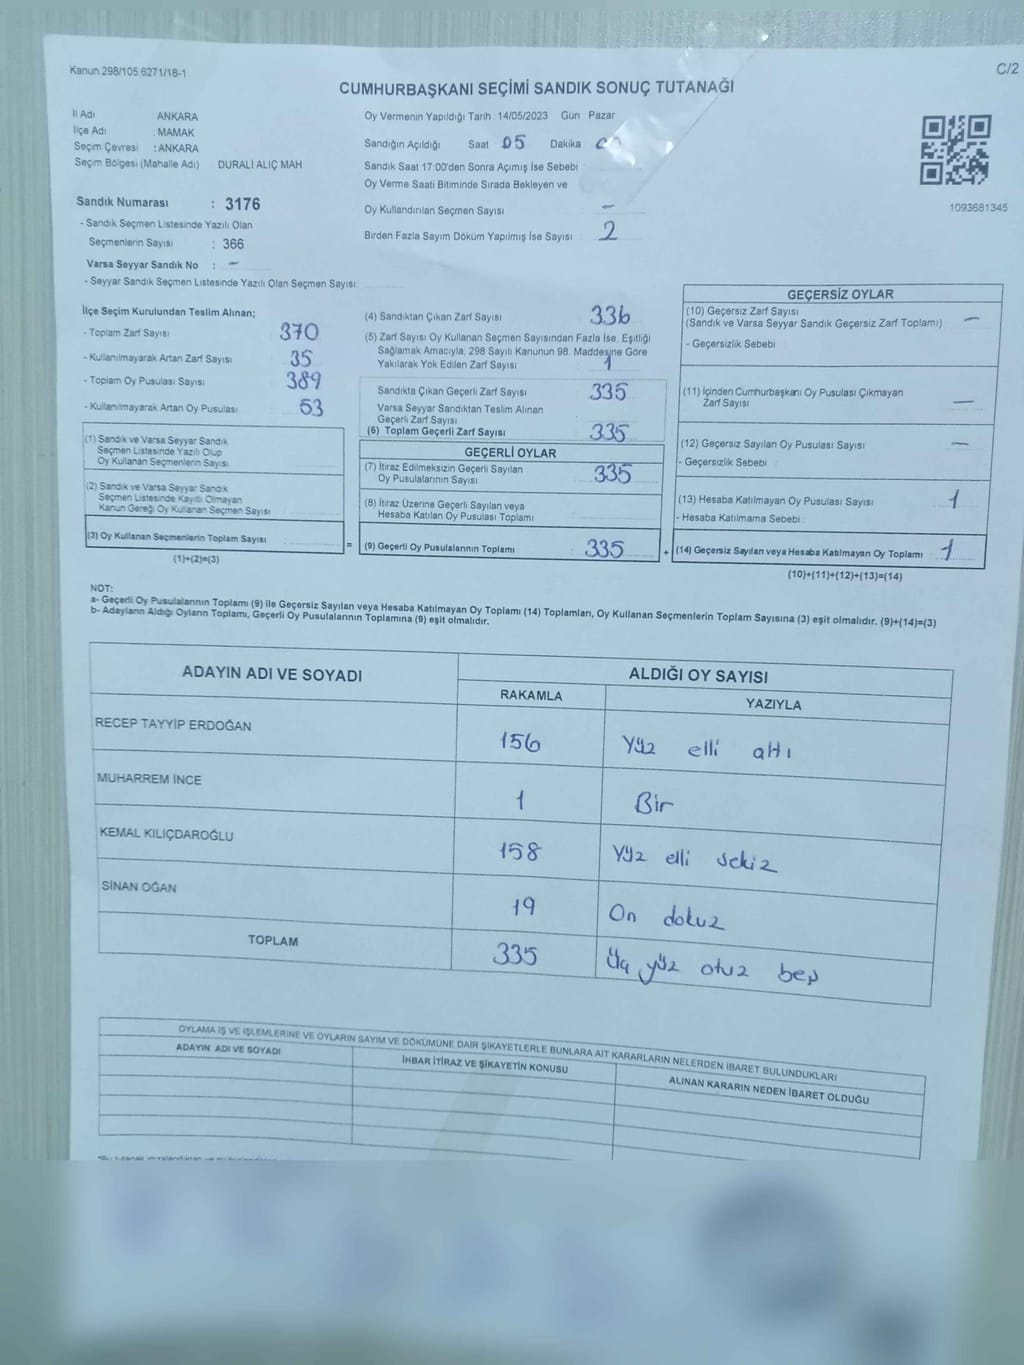 Kanun.298/105.6271/18-1
C/2
CUMHURBAŞKANI SEÇİMİ SANDIK SONUÇ TUTANAĞI
İl Adı ANKARA
İlçe Adı : MAMAK
Seçim Çevresi : ANKARA
Seçim Bölgesi (Mahalle Adı) DURALİ ALIÇ MAH
Oy Vermenin Yapıldığı Tarih 14/05/2023 Gün Pazar
Sandığın Açıldığı Saat 05 Dakika
Sandık Saat 17:00'den Sonra Açımış İse Sebebi
Oy Verme Saati Bitiminde Sırada Bekleyen ve
Oy Kullandırılan Seçmen Sayısı : -
Birden Fazla Sayım Döküm Yapılmış İse Sayısı : 2
1093681345
Sandık Numarası : 3176
- Sandık Seçmen Listesinde Yazılı Olan
Seçmenlerin Sayısı : 366
Varsa Seyyar Sandık No : -
- Seyyar Sandık Seçmen Listesinde Yazılı Olan Seçmen Sayısı:
İlçe Seçim Kurulundan Teslim Alınan;
- Toplam Zarf Sayısı 370
- Kullanılmayarak Artan Zarf Sayısı 35
- Toplam Oy Pusulası Sayısı 389
- Kullanılmayarak Artan Oy Pusulası 53
(1) Sandık ve Varsa Seyyar Sandık
Seçmen Listesinde Yazılı Olup
Oy Kullanan Seçmenlerin Sayısı
(2) Sandık ve Varsa Seyyar Sandık
Seçmen Listesinde Kayıtlı Olmayan
Kanun Gereği Oy Kullanan Seçmen Sayısı :
(3) Oy Kullanan Seçmenlerin Toplam Sayısı =
(1)+(2)=(3)
(4) Sandıktan Çıkan Zarf Sayısı 336
(5) Zarf Sayısı Oy Kullanan Seçmen Sayısından Fazla İse, Eşitliği
Sağlamak Amacıyla, 298 Sayılı Kanunun 98. Maddesine Göre
Yakılarak Yok Edilen Zarf Sayısı 1
Sandıkta Çıkan Geçerli Zarf Sayısı 335
Varsa Seyyar Sandıktan Teslim Alınan
Geçerli Zarf Sayısı
(6) Toplam Geçerli Zarf Sayısı 335
GEÇERLİ OYLAR
(7) İtiraz Edilmeksizin Geçerli Sayılan
Oy Pusulalarının Sayısı 335
(8) İtiraz Üzerine Geçerli Sayılan veya
Hesaba Katılan Oy Pusulası Toplamı :
(9) Geçerli Oy Pusulalarının Toplamı : 335 +
GEÇERSİZ OYLAR
(10) Geçersiz Zarf Sayısı
(Sandık ve Varsa Seyyar Sandık Geçersiz Zarf Toplamı) : -
- Geçersizlik Sebebi
(11) İçinden Cumhurbaşkanı Oy Pusulası Çıkmayan
Zarf Sayısı -
(12) Geçersiz Sayılan Oy Pusulası Sayısı -
- Geçersizlik Sebebi
(13) Hesaba Katılmayan Oy Pusulası Sayısı 1
- Hesaba Katılmama Sebebi
(14) Geçersiz Sayılan veya Hesaba Katılmayan Oy Toplamı : 1
(10)+(11)+(12)+(13)=(14)
NOT:
a- Geçerli Oy Pusulalarının Toplamı (9) ile Geçersiz Sayılan veya Hesaba Katılmayan Oy Toplamı (14) Toplamları, Oy Kullanan Seçmenlerin Toplam Sayısına (3) eşit olmalıdır. (9)+(14)=(3)
b- Adayların Aldığı Oyların Toplamı, Geçerli Oy Pusulalarının Toplamına (9) eşit olmalıdır.
ADAYIN ADI VE SOYADI ALDIĞI OY SAYISI
RAKAMLA YAZIYLA
RECEP TAYYİP ERDOĞAN 156 Yüz elli altı
MUHARREM İNCE 1 Bir
KEMAL KILIÇDAROĞLU 158 Yüz elli sekiz
SİNAN OĞAN 19 On dokuz
TOPLAM 335 Üç yüz otuz beş
OYLAMA İŞ VE İŞLEMLERİNE VE OYLARIN SAYIM VE DÖKÜMÜNE DAİR ŞİKAYETLERLE BUNLARA AİT KARARLARIN NELERDEN İBARET BULUNDUKLARI
ADAYIN ADI VE SOYADI İHBAR İTİRAZ VE ŞİKAYETİN KONUSU ALINAN KARARIN NEDEN İBARET OLDUĞU